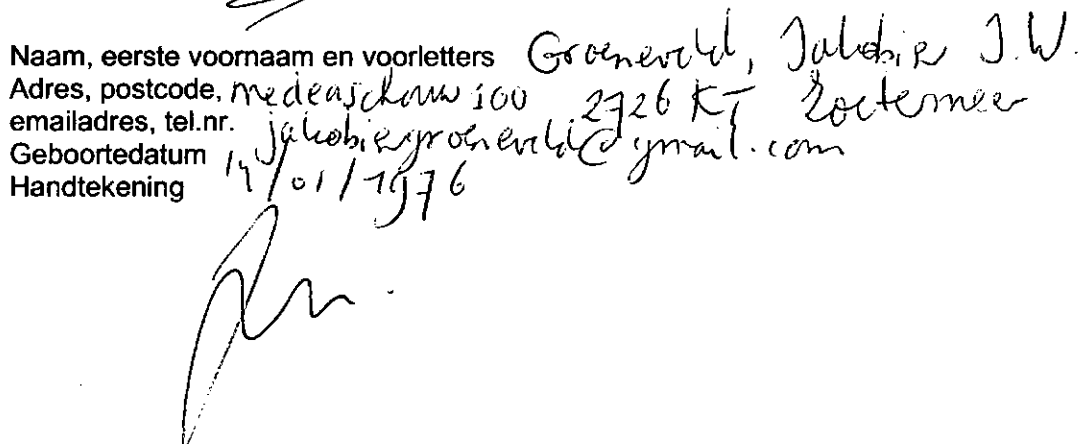 Naam, eerste voornaam en voorletters Groeneveld, Jakobie J.W.
Adres, postcode, medeaschouw 100 2726 KT Zoetermeer
emailadres, tel.nr. jakobiegroeneveld@gmail.com
Geboortedatum 14/01/1976
Handtekening